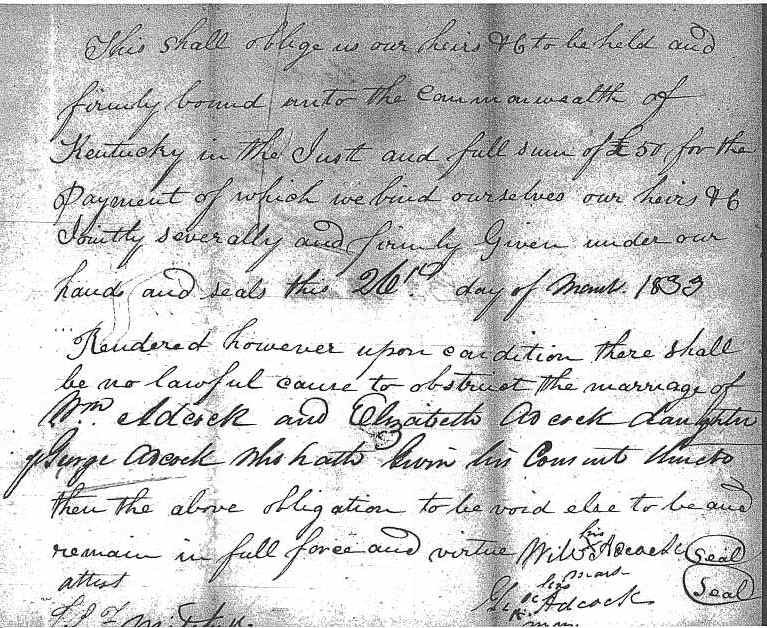 This shall oblige us our heirs &c to be held and
firmly bound unto the commonwealth of
Kentucky in the Just and full sum of £50 for the
Payment of which we bind ourselves our heirs &c
Jointly severally and firmly Given under our
hands and seals this 26th day of 1833
Rendered however upon condition there shall
be no lawful cause to obstruct the marriage of
Wm. Adcock and Elizabeth Adcock daughter
of George Adcock who hath Givin his Consent thereto
then the above obligation to be void else to be and
remain in full force and virtue his
Will Adcock Seal
attest mark
his
Ge Adcock Seal